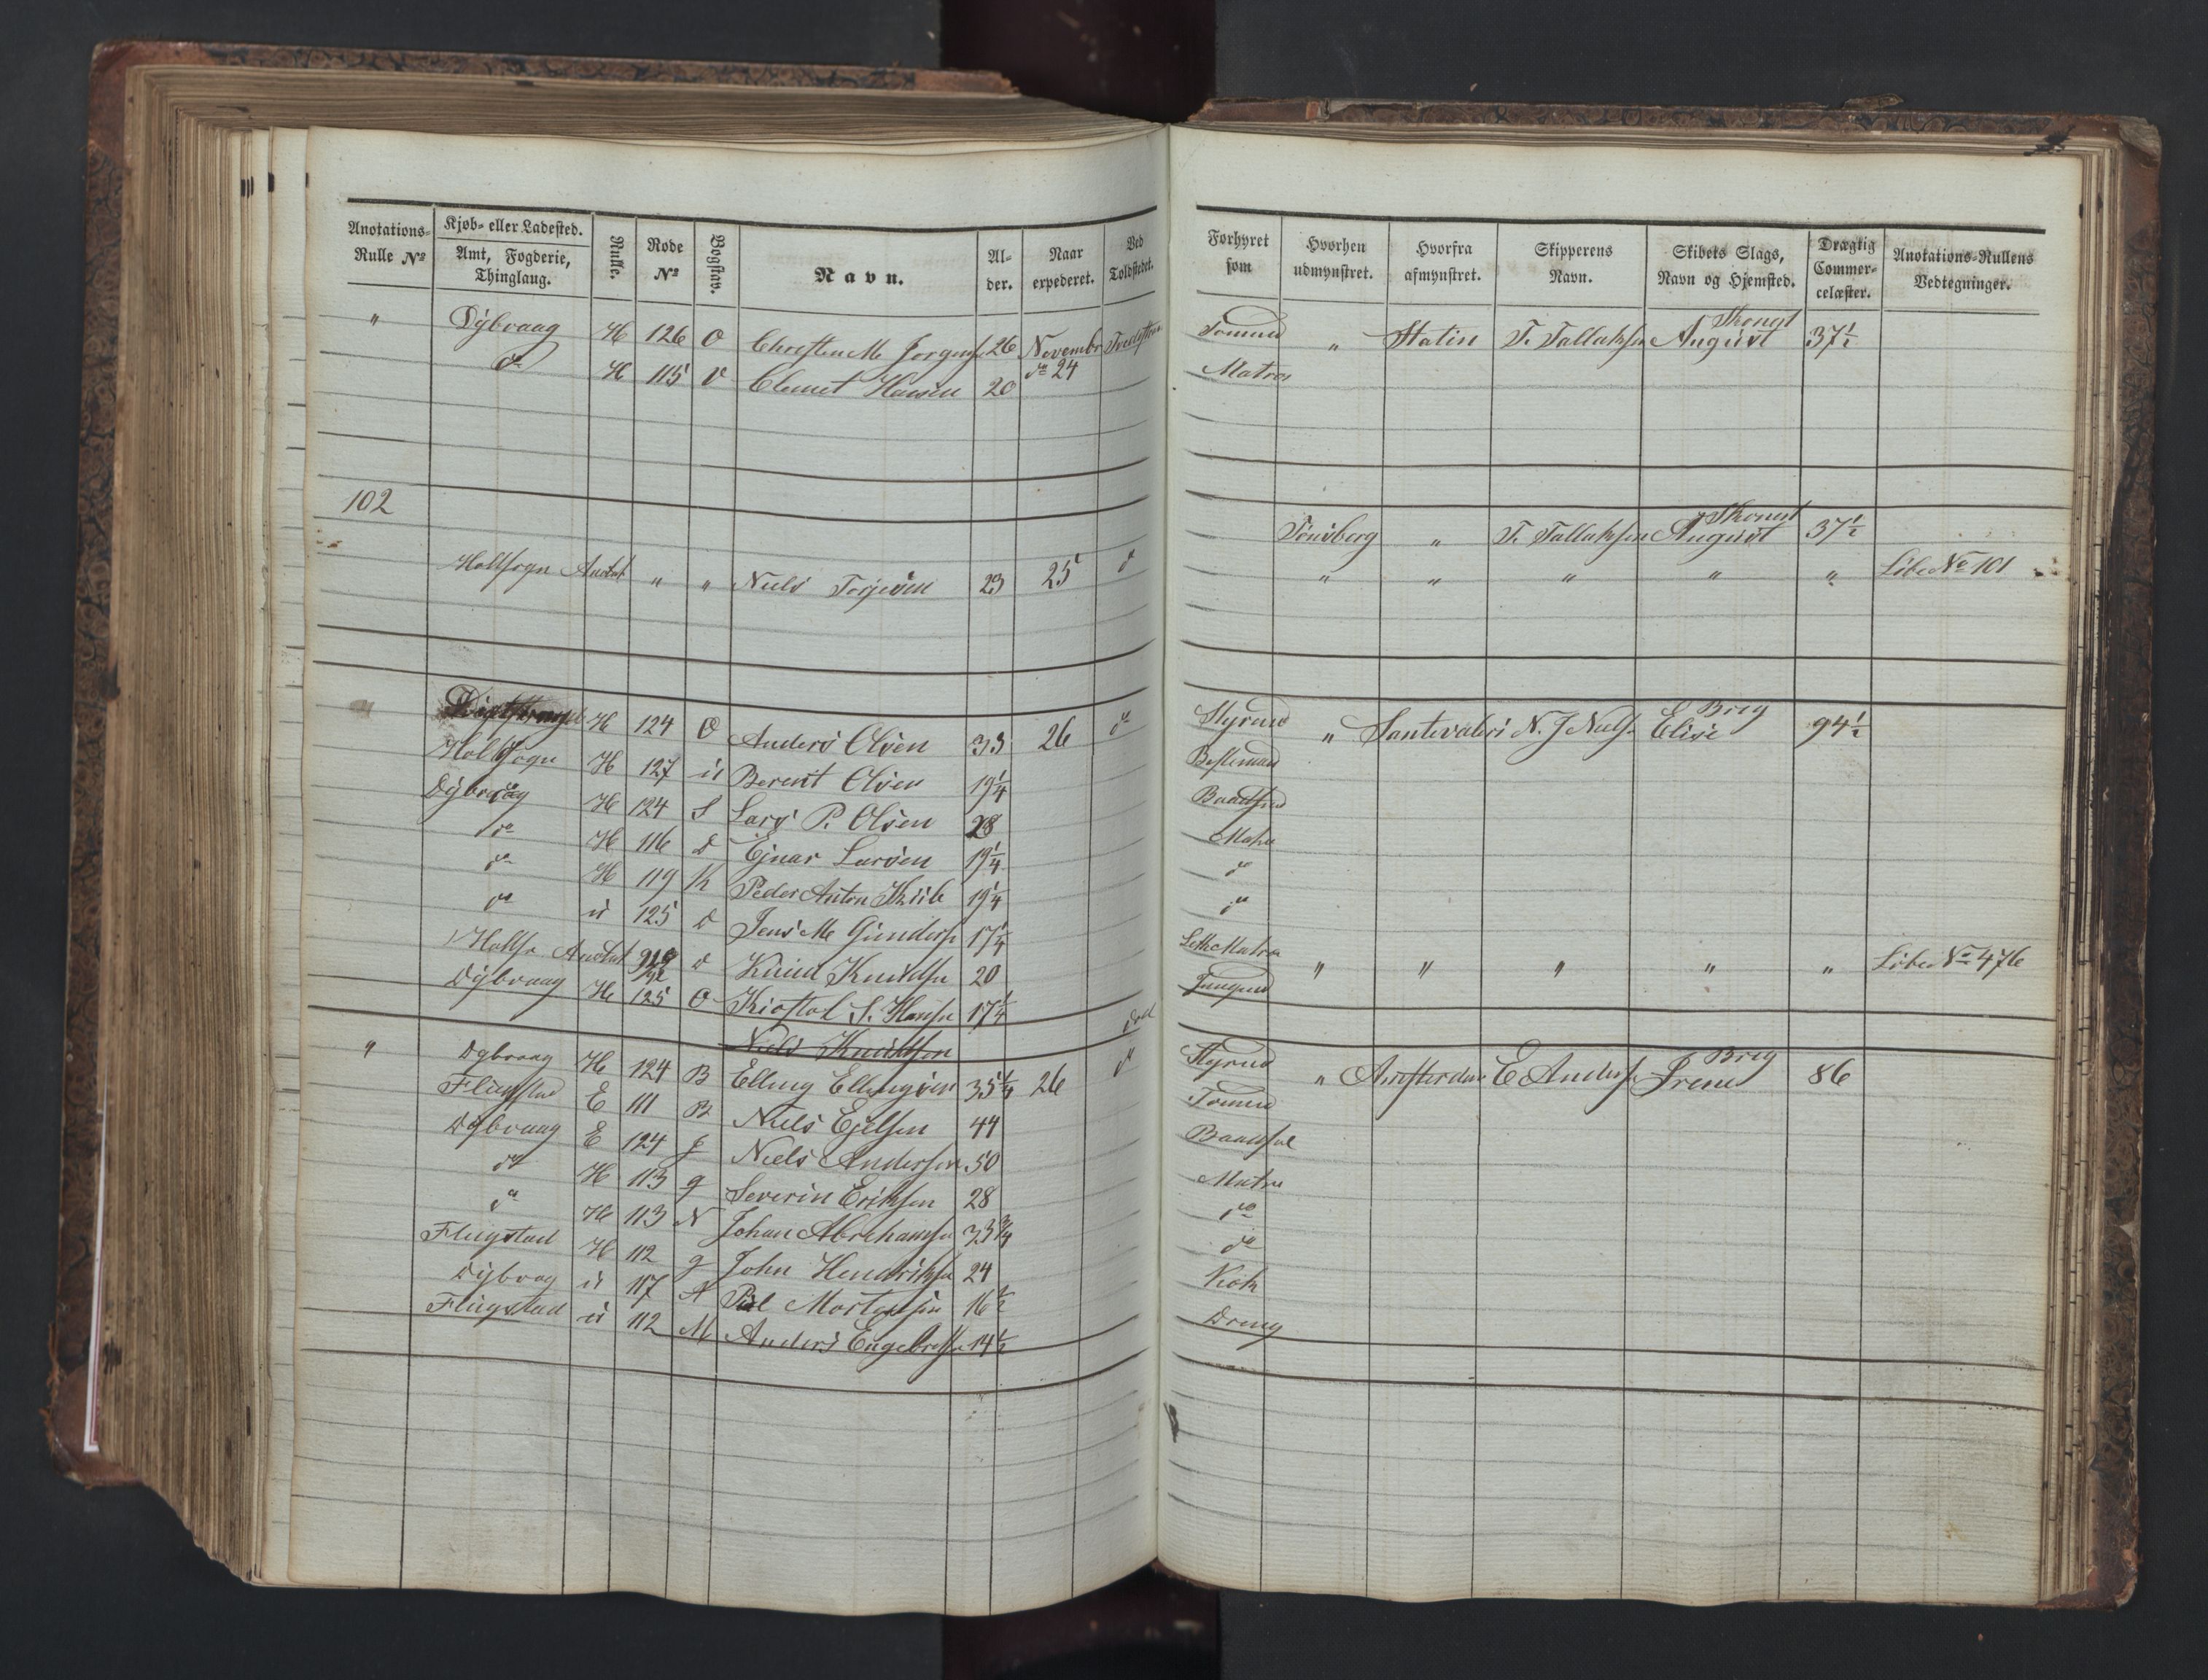 Anotations-Rulle No | Kjøb- eller Ladested. Amt, Fogderie, Thinglaug. | Rulle. | Rode No | Bogstav. | Navn. | Alder. | Naar expederet. | Ved Toldstedet. | Forhyret som | Hvorhen udmynstret. | Hvorfra afmynstret. | Skipperens Navn. | Skibets Slags, Navn og Hjemsted. | Drægtig Commercelæster. | Anotations-Rullens Vedtegninger.
" Dybvaag H 126 O Christen M Jørgens 26 Novembr Tømmd " Statin T. Tallaksen August 37½
do H 115 V Clemet Hansen 20 do 24 Matros
102 Tønsberg " T. Tallaksen August 37½
Holtsogn Anotat " " Niels Torjesen 23 25 do " " " " " Løbe No 101
H 124 O Anders Olsen 33 26 do Styrmd " N. J Niels Brig Elise 94½
Holtsogn H 127 Berent Olsen 19¼ Bestemand
Dybvaag H 124 S Lars P. Olsen 28
do H 116 D Ejnar Larsen 19¼ Matro
do H 119 K Peder Anton 19¼ do
do u 125 D Jens M Gunders 17¼ do
Holtsn Anotat D Knud Knudsen 20 Lettmatro " " " " " Løbe No 476
Dybvaag H 125 O Kristof S. Hansn 17¼ Jungmd
Niels Knudsen
" Dybvaag H 124 B Elling Ellingsen 35¼ 26 do Styrmd " Amsterdam E Anders Brig Irene 86
E 111 B Niels Ejelsen 44 Tømmd
Dybvaag E 124 J Niels Andersen 50
do H 113 g Severin Eriksen 28 Matro
do H 113 N Johan Abrahamsn 33¾ do
Flugstad H 112 g John Henriksn 24 do
Dybvag u 117 A Mortensen 16½ Kok
Flugstad u 112 M Anders Engebretsn 14½ Dreng